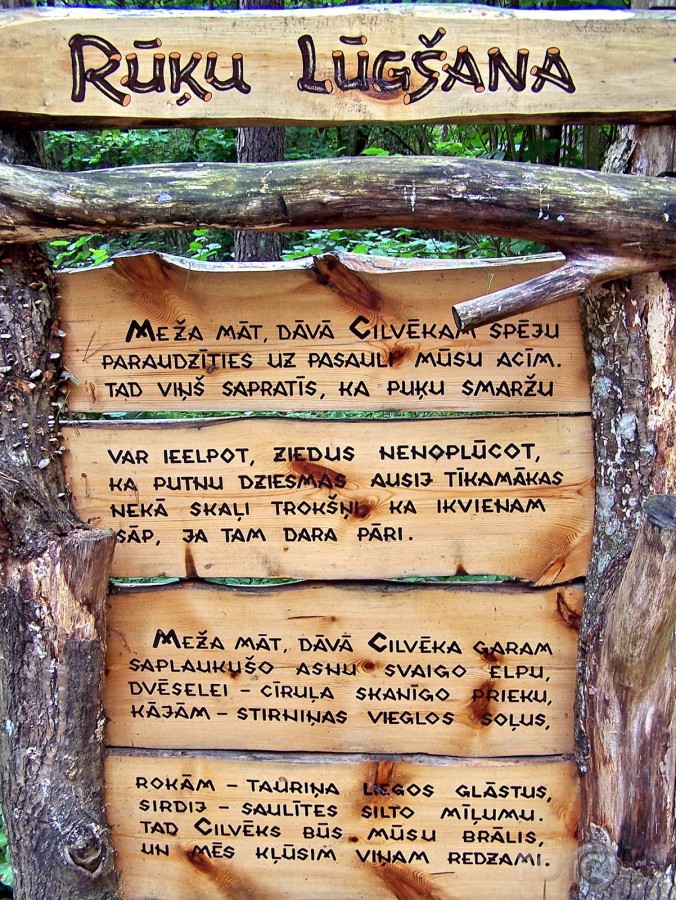 RŪĶU LŪGŠANA
MEŽA MĀT, DĀVĀ CILVĒKAM SPĒJU
PARAUDZĪTIES UZ PASAULI MŪSU ACĪM.
TAD VIŅŠ SAPRATĪS, KA PUĶU SMARŽU
VAR IEELPOT, ZIEDUS NENOPLŪCOT,
KA PUTNU DZIESMAS AUSIJ TĪKAMĀKAS
NEKĀ SKAĻI TROKŠŅI, KA IKVIENAM
SĀP, JA TAM DARA PĀRI.
MEŽA MĀT, DĀVĀ CILVĒKA GARAM
SAPLAUKUŠO ASNU SVAIGO ELPU,
DVĒSELEI - CĪRUĻA SKANĪGO PRIEKU,
KĀJĀM - STIRNIŅAS VIEGLOS SOĻUS,
ROKĀM - TAURIŅA LIEGOS GLĀSTUS,
SIRDIJ - SAULĪTES SILTO MĪĻUMU.
TAD CILVĒKS BŪS MŪSU BRĀLIS,
UN MĒS KĻŪSIM VIŅAM REDZAMI.